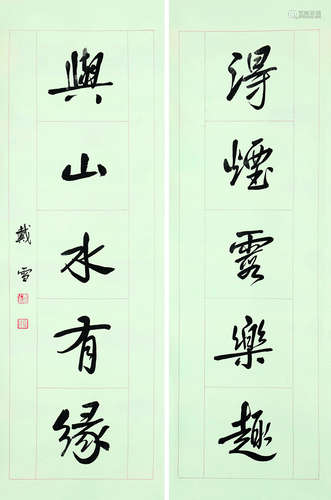 得煙霞樂趣
與山水有緣
戴雪